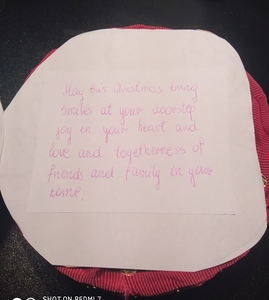 May this Christmas bring
smiles at your doorstep
joy in your heart and
love and togetherness of
friends and family in your
home.
SHOT ON REDMI 7